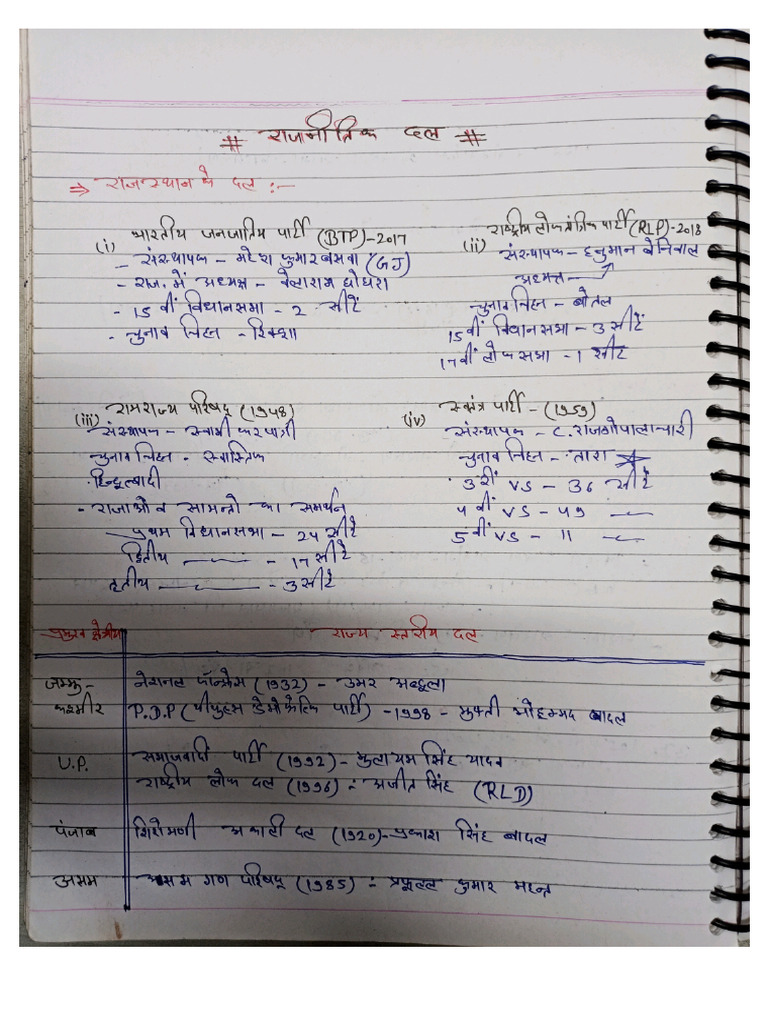 # राजनीतिक दल #
⇒ राजस्थान के दल :-
(i) भारतीय जनजातिय पार्टी (BTP)-2017
- संस्थापक - महेश कुमार वसवा (GJ)
- राज. में अध्यक्ष - वेलाराम घोघरा
- 15 वीं विधानसभा - 2 सीटें
- चुनाव चिह्न - रिक्शा
(ii) राष्ट्रीय लोकतंत्रिक पार्टी (RLP)-2018
संस्थापक - हनुमान बेनिवाल
अध्यक्ष
चुनाव चिह्न - बोतल
15वीं विधानसभा - 3 सीटें
17वीं लोकसभा - 1 सीट
(iii) रामराज्य परिषद् (1948)
संस्थापक - स्वामी करपात्री
चुनाव चिह्न - स्वास्तिक
हिन्दुत्वादी
- राजाओं व सामन्तो का समर्थन
प्रथम विधानसभा - 24 सीटें
द्वितीय - 17 सीटें
तृतीय - 3 सीटें
(iv) स्वतंत्र पार्टी - (1959)
संस्थापक - C. राजगोपालाचारी
चुनाव चिह्न - तारा
3री VS - 36 सीटें
4 वीं VS - 49
5 वीं VS - 11
प्रमुख क्षेत्रीय राज्य स्तरीय दल
जम्मु- नेशनल कॉन्फ्रेंस (1932) - उमर अब्दुला
कश्मीर P.D.P (पीपुल्स डेमोक्रेटिक पार्टी) - 1998 - मुफ्ती मोहम्मद बादल
U.P. समाजवादी पार्टी (1992) - मुलायम सिंह यादव
राष्ट्रीय लोक दल (1996) :- अजीत सिंह (RLD)
पंजाब शिरोमणी अकाली दल (1920)- प्रकाश सिंह बादल
असम असम गण परिषद् (1985) :- प्रफुल्ल कुमार महन्त